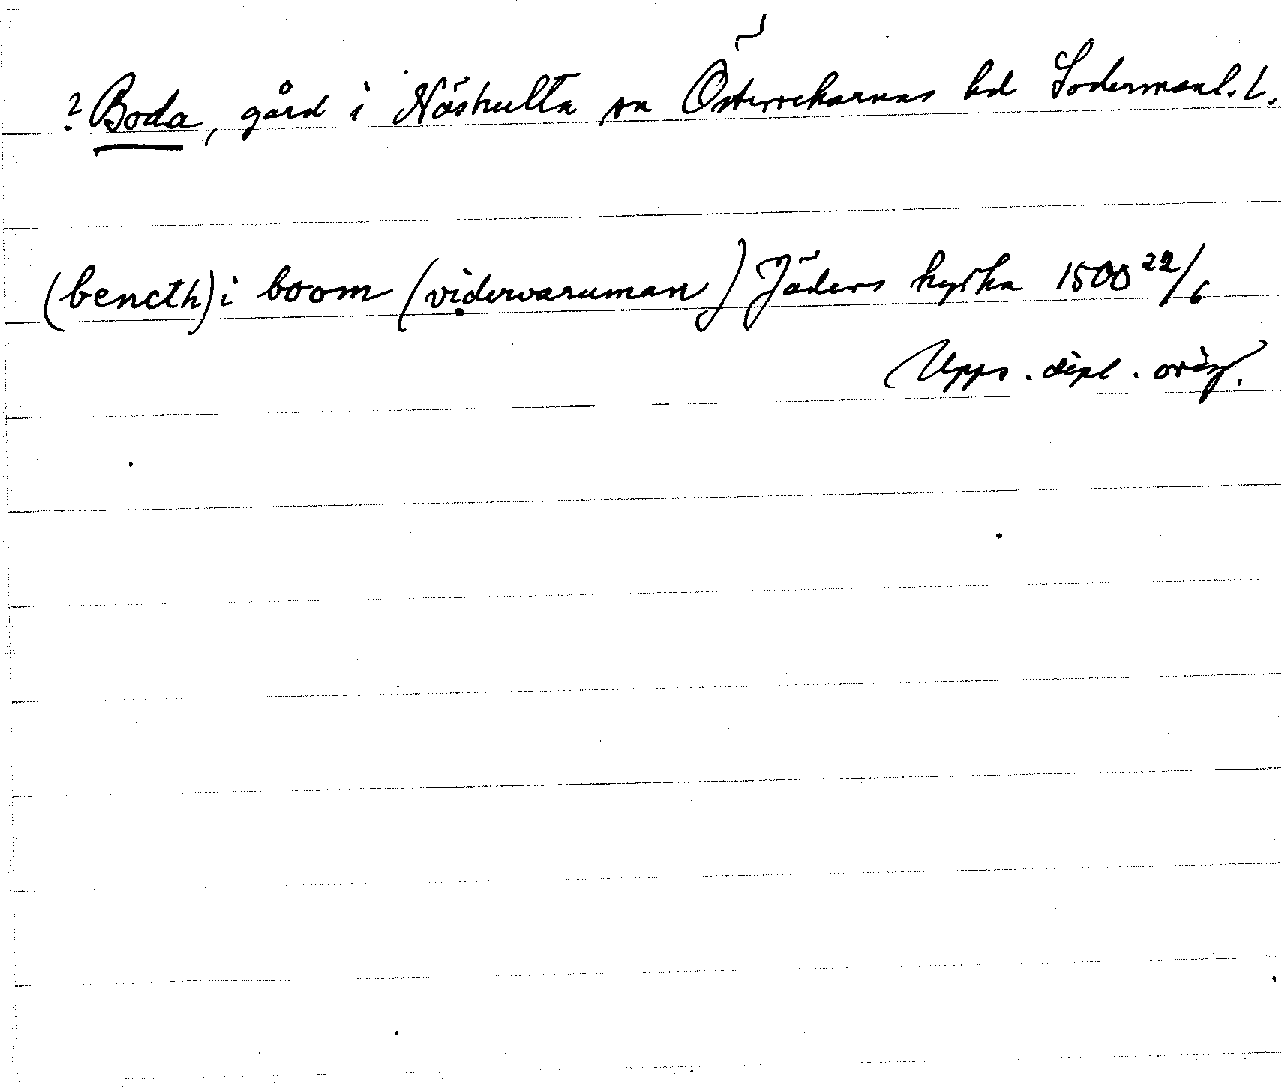 ? Boda, gård i Näshulta sn Österrekarnes hd Södermanl. l.
(bencth) i boom (vidervaruman) Jäders kyrka 1500 22/6
Upps. dipl. orig.